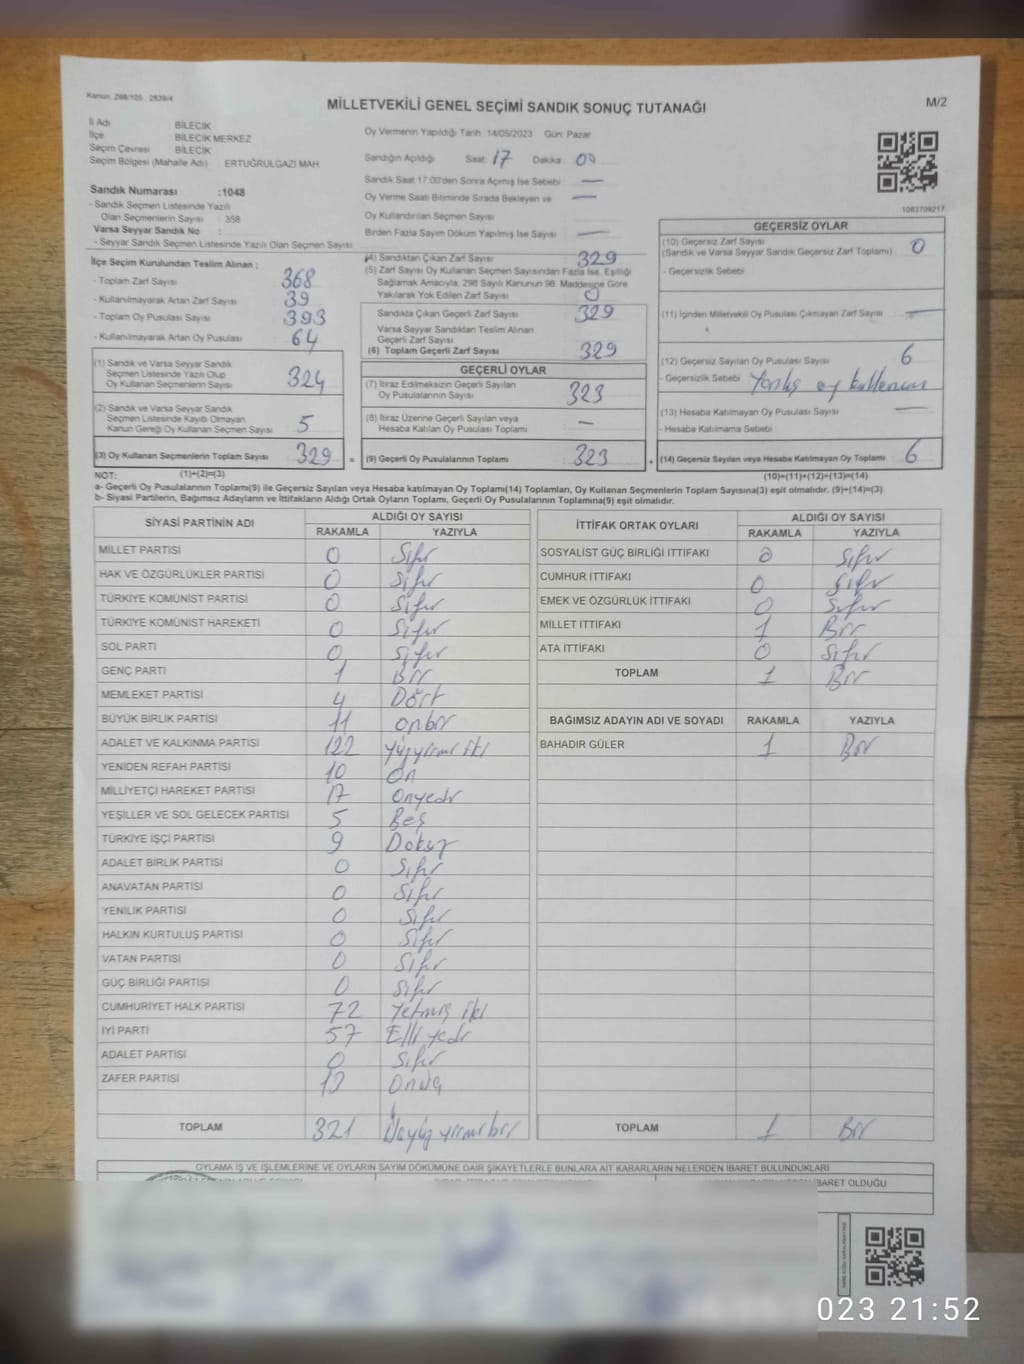 Kanun: 298/105 , 2839/4
MİLLETVEKİLİ GENEL SEÇİMİ SANDIK SONUÇ TUTANAĞI
M/2
İl Adı : BİLECİK
İlçe : BİLECİK MERKEZ
Seçim Çevresi : BİLECİK
Seçim Bölgesi (Mahalle Adı) : ERTUĞRULGAZİ MAH.
Sandık Numarası :1048
- Sandık Seçmen Listesinde Yazılı
Olan Seçmenlerin Sayısı : 358
Varsa Seyyar Sandık No :
- Seyyar Sandık Seçmen Listesinde Yazılı Olan Seçmen Sayısı:
Oy Vermenin Yapıldığı Tarih: 14/05/2023 Gün: Pazar
Sandığın Açıldığı Saat: 17 Dakika: 00
Sandık Saat 17:00'den Sonra Açılmış İse Sebebi : —
Oy Verme Saati Bitiminde Sırada Bekleyen ve —
Oy Kullandırılan Seçmen Sayısı
Birden Fazla Sayım Döküm Yapılmış İse Sayısı : —
1083709217
İlçe Seçim Kurulundan Teslim Alınan ;
- Toplam Zarf Sayısı : 368
- Kullanılmayarak Artan Zarf Sayısı : 39
- Toplam Oy Pusulası Sayısı : 393
- Kullanılmayarak Artan Oy Pusulası : 64
(1) Sandık ve Varsa Seyyar Sandık
Seçmen Listesinde Yazılı Olup
Oy Kullanan Seçmenlerin Sayısı 324
(2) Sandık ve Varsa Seyyar Sandık
Seçmen Listesinde Kayıtlı Olmayan
Kanun Gereği Oy Kullanan Seçmen Sayısı 5
(3) Oy Kullanan Seçmenlerin Toplam Sayısı 329 =
(4) Sandıktan Çıkan Zarf Sayısı 329
(5) Zarf Sayısı Oy Kullanan Seçmen Sayısından Fazla İse, Eşitliği
Sağlamak Amacıyla, 298 Sayılı Kanunun 98. Maddesine Göre
Yakılarak Yok Edilen Zarf Sayısı 0
Sandıkta Çıkan Geçerli Zarf Sayısı 329
Varsa Seyyar Sandıktan Teslim Alınan
Geçerli Zarf Sayısı
(6) Toplam Geçerli Zarf Sayısı 329
GEÇERLİ OYLAR
(7) İtiraz Edilmeksizin Geçerli Sayılan
Oy Pusulalarının Sayısı 323
(8) İtiraz Üzerine Geçerli Sayılan veya
Hesaba Katılan Oy Pusulası Toplamı —
(9) Geçerli Oy Pusulalarının Toplamı 323 +
GEÇERSİZ OYLAR
(10) Geçersiz Zarf Sayısı 0
(Sandık ve Varsa Seyyar Sandık Geçersiz Zarf Toplamı)
- Geçersizlik Sebebi
(11) İçinden Milletvekili Oy Pusulası Çıkmayan Zarf Sayısı —
(12) Geçersiz Sayılan Oy Pusulası Sayısı 6
- Geçersizlik Sebebi : Yanlış oy kullanım
(13) Hesaba Katılmayan Oy Pusulası Sayısı —
- Hesaba Katılmama Sebebi :
(14) Geçersiz Sayılan veya Hesaba Katılmayan Oy Toplamı 6
NOT: (1)+(2)=(3) (10)+(11)+(12)+(13)=(14)
a- Geçerli Oy Pusulalarının Toplamı(9) ile Geçersiz Sayılan veya Hesaba katılmayan Oy Toplamı(14) Toplamları, Oy Kullanan Seçmenlerin Toplam Sayısına(3) eşit olmalıdır. (9)+(14)=(3)
b- Siyasi Partilerin, Bağımsız Adayların ve İttifakların Aldığı Ortak Oyların Toplamı, Geçerli Oy Pusulalarının Toplamına(9) eşit olmalıdır.
SİYASİ PARTİNİN ADI ALDIĞI OY SAYISI
RAKAMLA YAZIYLA
MİLLET PARTİSİ 0 Sıfır
HAK VE ÖZGÜRLÜKLER PARTİSİ 0 Sıfır
TÜRKİYE KOMÜNİST PARTİSİ 0 Sıfır
TÜRKİYE KOMÜNİST HAREKETİ 0 Sıfır
SOL PARTİ 0 Sıfır
GENÇ PARTİ 1 Bir
MEMLEKET PARTİSİ 4 Dört
BÜYÜK BİRLİK PARTİSİ 11 onbir
ADALET VE KALKINMA PARTİSİ 122 Yüzyirmi iki
YENİDEN REFAH PARTİSİ 10 On
MİLLİYETÇİ HAREKET PARTİSİ 17 Onyedi
YEŞİLLER VE SOL GELECEK PARTİSİ 5 Beş
TÜRKİYE İŞÇİ PARTİSİ 9 Dokuz
ADALET BİRLİK PARTİSİ 0 Sıfır
ANAVATAN PARTİSİ 0 Sıfır
YENİLİK PARTİSİ 0 Sıfır
HALKIN KURTULUŞ PARTİSİ 0 Sıfır
VATAN PARTİSİ 0 Sıfır
GÜÇ BİRLİĞİ PARTİSİ 0 Sıfır
CUMHURİYET HALK PARTİSİ 72 Yetmiş iki
İYİ PARTİ 57 Elli yedi
ADALET PARTİSİ 0 Sıfır
ZAFER PARTİSİ 13 Onüç
TOPLAM 321 Üçyüz yirmi bir
İTTİFAK ORTAK OYLARI ALDIĞI OY SAYISI
RAKAMLA YAZIYLA
SOSYALİST GÜÇ BİRLİĞİ İTTİFAKI 0 Sıfır
CUMHUR İTTİFAKI 0 Sıfır
EMEK VE ÖZGÜRLÜK İTTİFAKI 0 Sıfır
MİLLET İTTİFAKI 1 Bir
ATA İTTİFAKI 0 Sıfır
TOPLAM 1 Bir
BAĞIMSIZ ADAYIN ADI VE SOYADI RAKAMLA YAZIYLA
BAHADIR GÜLER 1 Bir
TOPLAM 1 Bir
OYLAMA İŞ VE İŞLEMLERİNE VE OYLARIN SAYIM DÖKÜMÜNE DAİR ŞİKAYETLERLE BUNLARA AİT KARARLARIN NELERDEN İBARET BULUNDUKLARI
BARET OLDUĞU
023 21:52